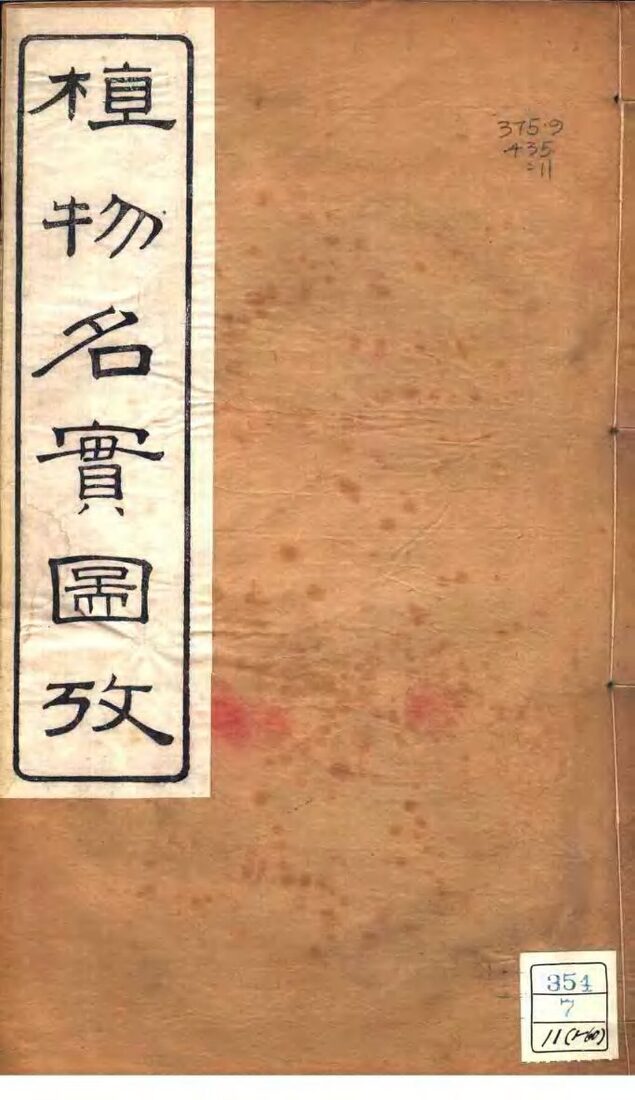 植物名實圖攷
375.9
435
:11
354
7